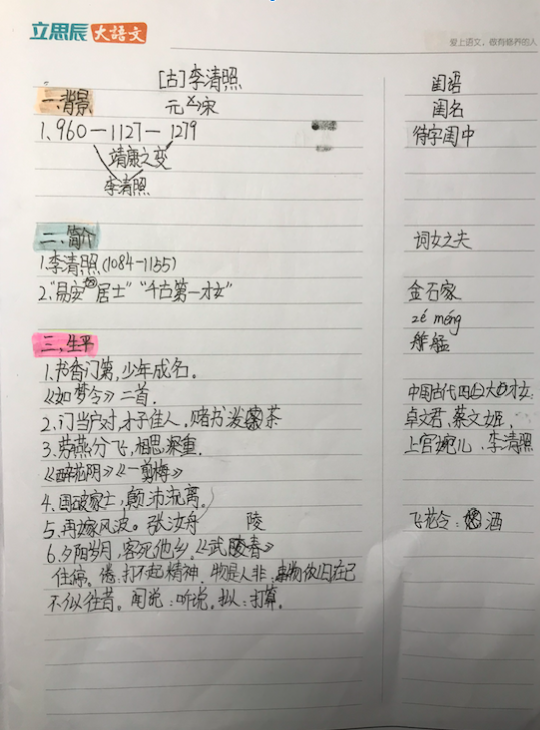 立思辰大语文
爱上语文，做有修养的人
[古]李清照
一、背景
元×宋
1、960—1127—1279
靖康之变
李清照
二、简介
1.李清照(1084-1155)
2."易安居士""千古第一才女"
三、生平
1、书香门第,少年成名。
《如梦令》二首.
2、门当户对,才子佳人,赌书泼茶
3、劳燕分飞,相思深重.
《醉花阴》《一剪梅》
4、国破家亡,颠沛流离。
5、再嫁风波。张汝舟
陵
6、夕阳岁月,客死他乡.《武陵春》
住:停。倦:打不起精神.物是人非:事物依旧在已
不似往昔。闻说:听说。拟:打算.
闺语
闺名
待字闺中
词女之夫
金石家
zé měng
舴艋
中国古代四大才女:
卓文君、蔡文姬、
上官婉儿、李清照
飞花令:酒